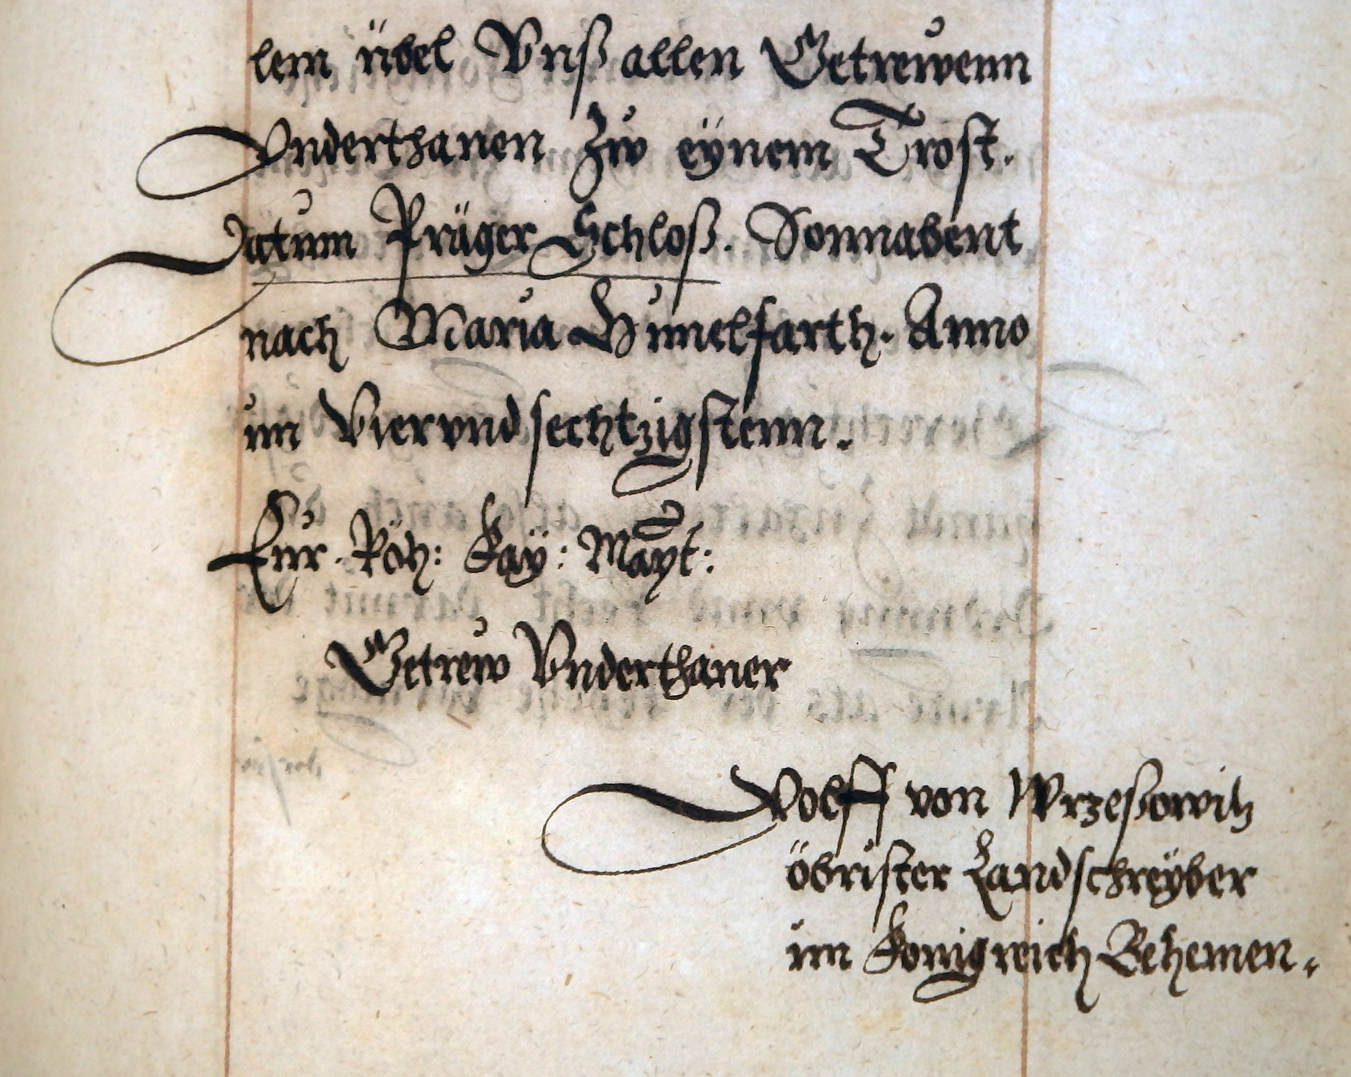 lem übel Vnß allen Getrewenn
Vnderthanen Zw eÿnem Trost.
Datum Präger Schloß. Sonnabent
nach Maria Himelfarth. Anno
im Viervnd sechtzigstenn.
Eur. Röh: Kaÿ: Maÿt:
Getrew Vnderthaner
Wolff von Wrzeßowitz
öbrister Landschreÿber
im Konigreich Behemen.